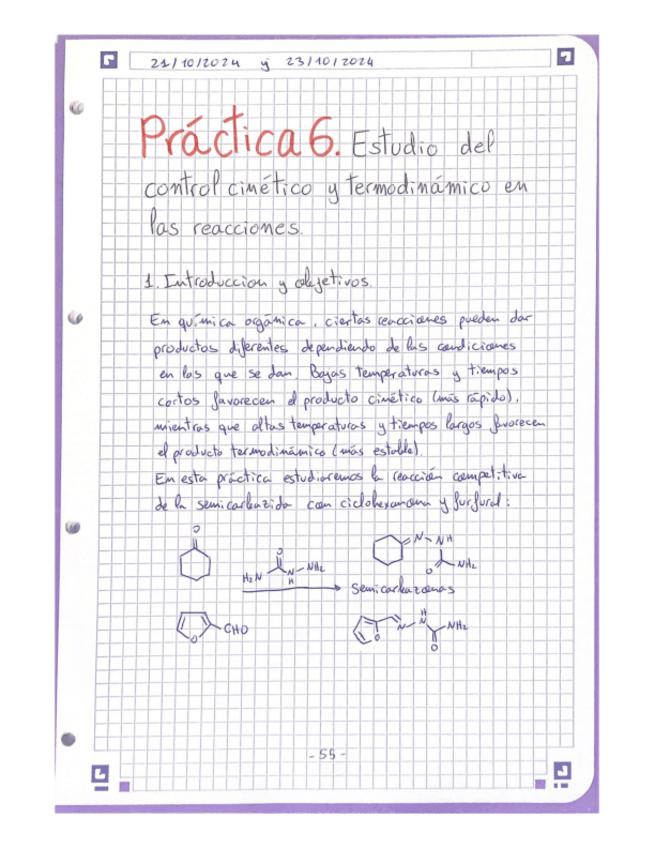 21/10/2024 y 23/10/2024
Práctica 6. Estudio del
control cinético y termodinámico en
las reacciones.
1. Introduccion y objetivos.
En química orgánica, ciertas reacciones pueden dar
productos diferentes dependiendo de las condiciones
en las que se dan. Bajas temperaturas y tiempos
cortos favorecen el producto cinético (más rápido),
mientras que altas temperaturas y tiempos largos favorecen
el producto termodinámico (más estable).
En esta práctica estudiaremos la reacción competitiva
de la semicarbazida con ciclohexanona y furfural:
O
O
H₂N
N
H
NH₂
N
NH
O
NH₂
Semicarbazonas
O
CHO
O
N
H
N
NH₂
O
- 55 -